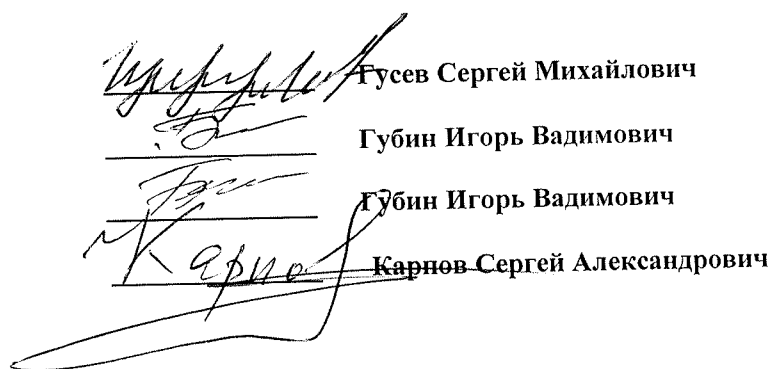 Гусев Сергей Михайлович
Губин Игорь Вадимович
Губин Игорь Вадимович
Карпов Карпов Сергей Александрович